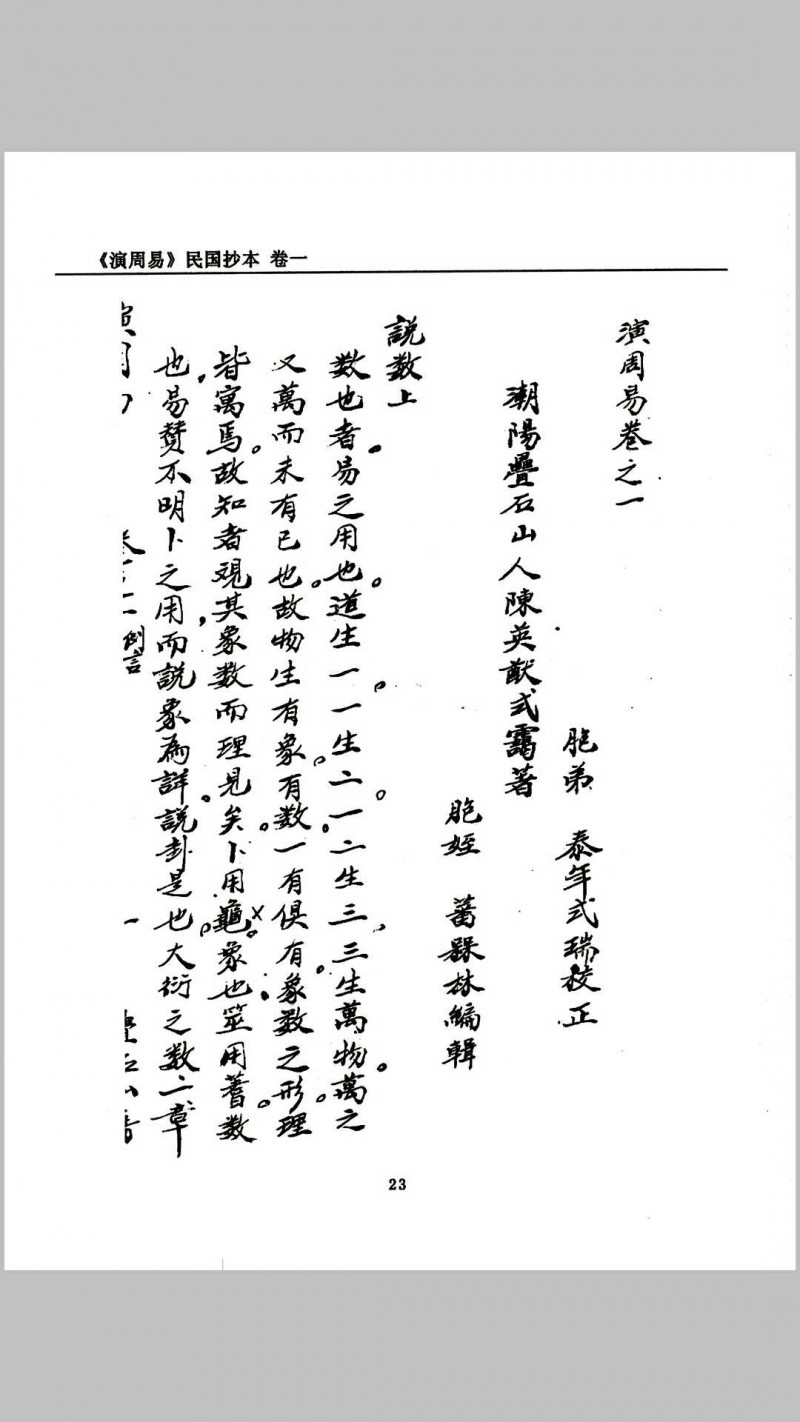 《演周易》民国抄本 卷一
演周易卷之一
潮陽疊石山人陳英猷式靄著
胞弟 泰年式瑞校正
胞姪 蕃槑林編輯
說数上
数也者易之用也。道生一一生二。一二生三三生萬物。萬之
又萬而未有已也。故物生有象。有数。一有俱有。象数之形。理
皆寓焉。故知者覌其象数而理見矣。卜用龜。象也。筮用蓍。数
也。易賛不明卜之用而說象為詳。說卦是也。大衍之数二章
例言
一
23